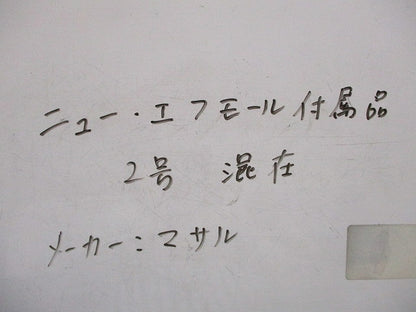 ニュー・エフモール付属品
2号 混在
メーカー:マサル